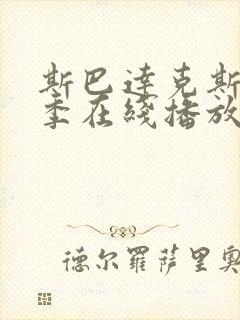 斯巴達克斯
季在綫播放
德尔羅萨里奥